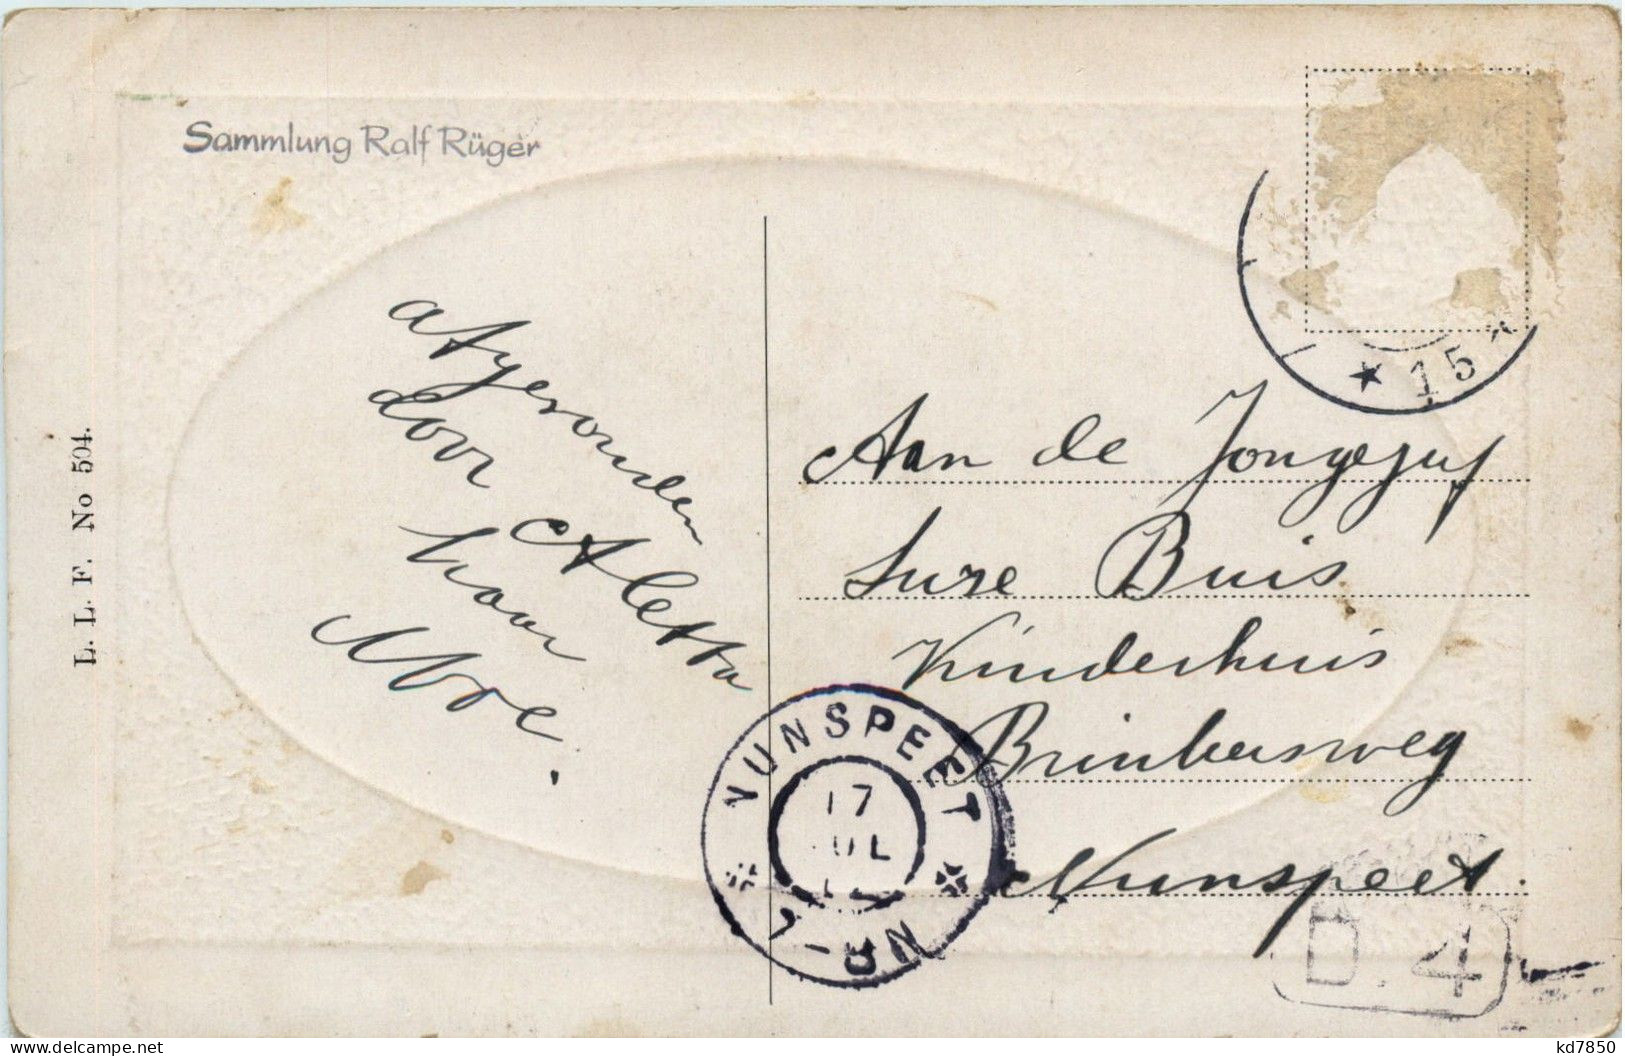 Sammlung Ralf Rüger
L. L. F. No 504.
afgesonden
door Aletta
haar
Moe.
Aan de Jongejuf
Suze Buis
Kinderhuis
Brinkersweg
Nunspeet.
* 15 *
NUNSPEET
17
JUL
D. 4
delcampe.net
kd7850